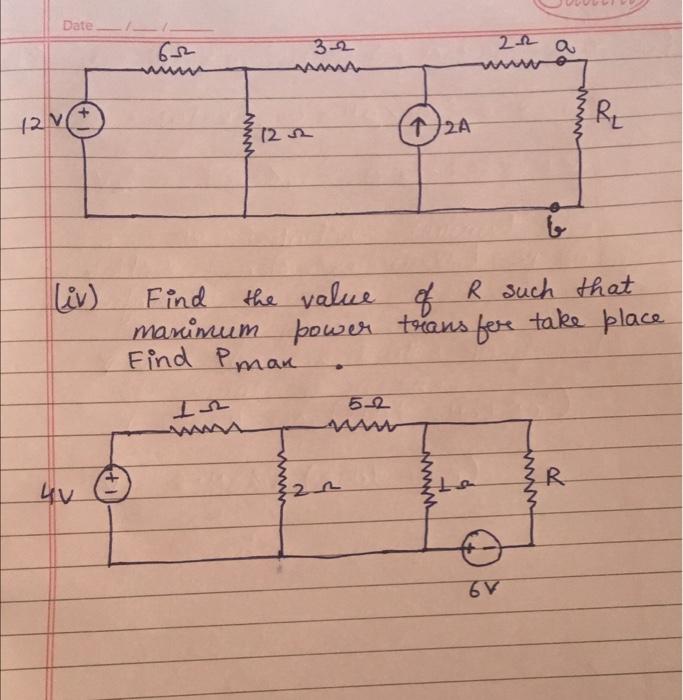 Date / /
6Ω 3Ω 2Ω a
12 V + − 12 Ω ↑ 2A R_L
b
(iv) Find the value of R such that
maximum power transfer take place
Find Pmax .
1Ω 5Ω
4V + − 2Ω 1Ω R
+ −
6V